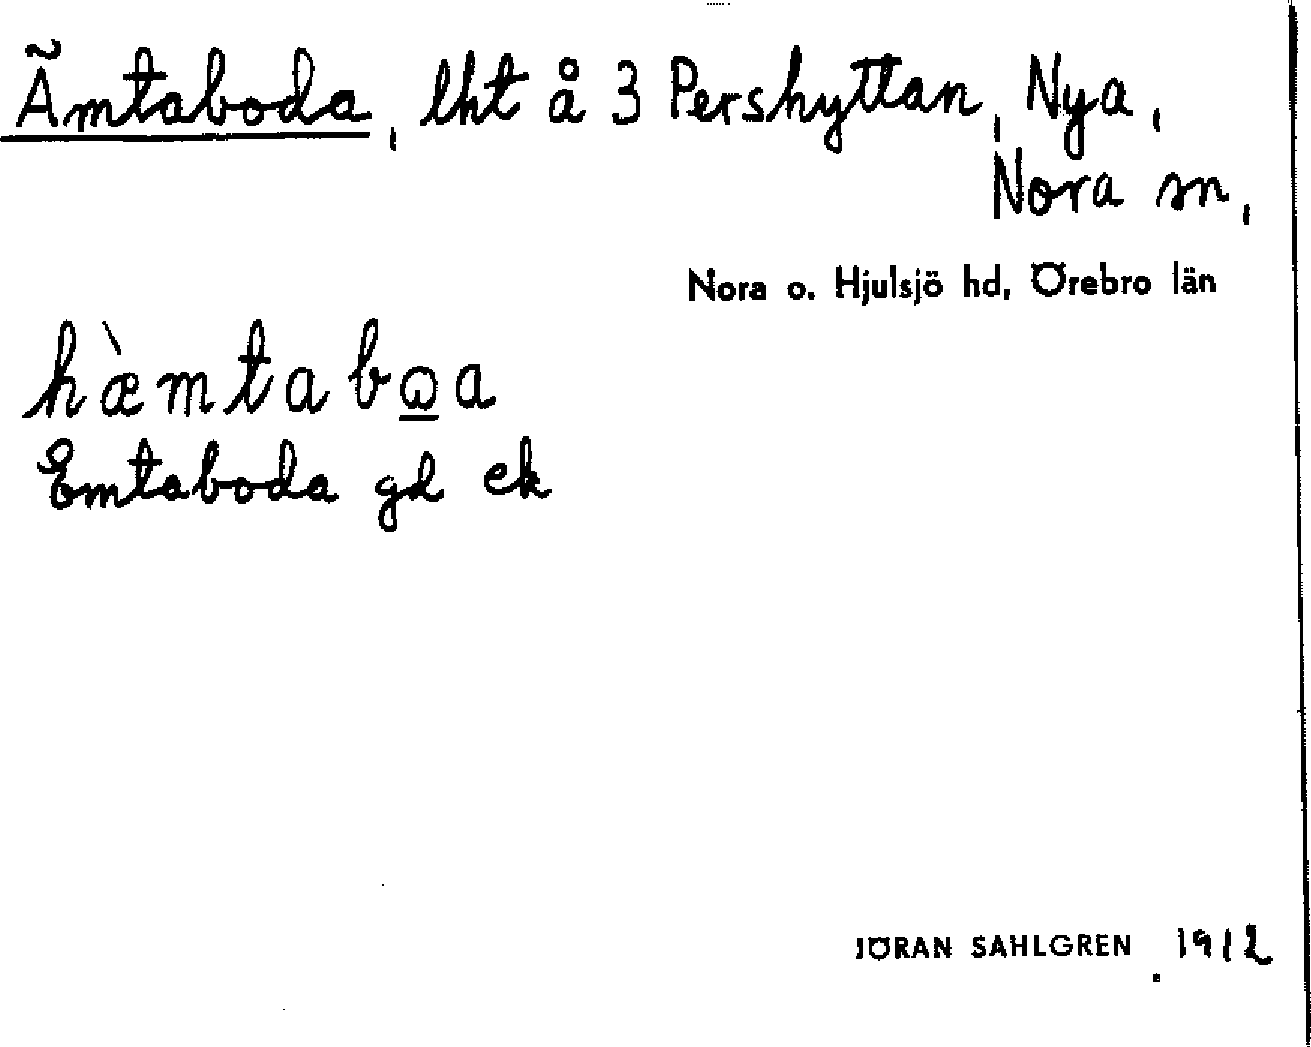 Ämtaboda, lht å 3 Pershyttan, Nya,
Nora sn,
Nora o. Hjulsjö hd, Örebro län
hæ̀mtabωa
Emtaboda gd ek
JÖRAN SAHLGREN 1912